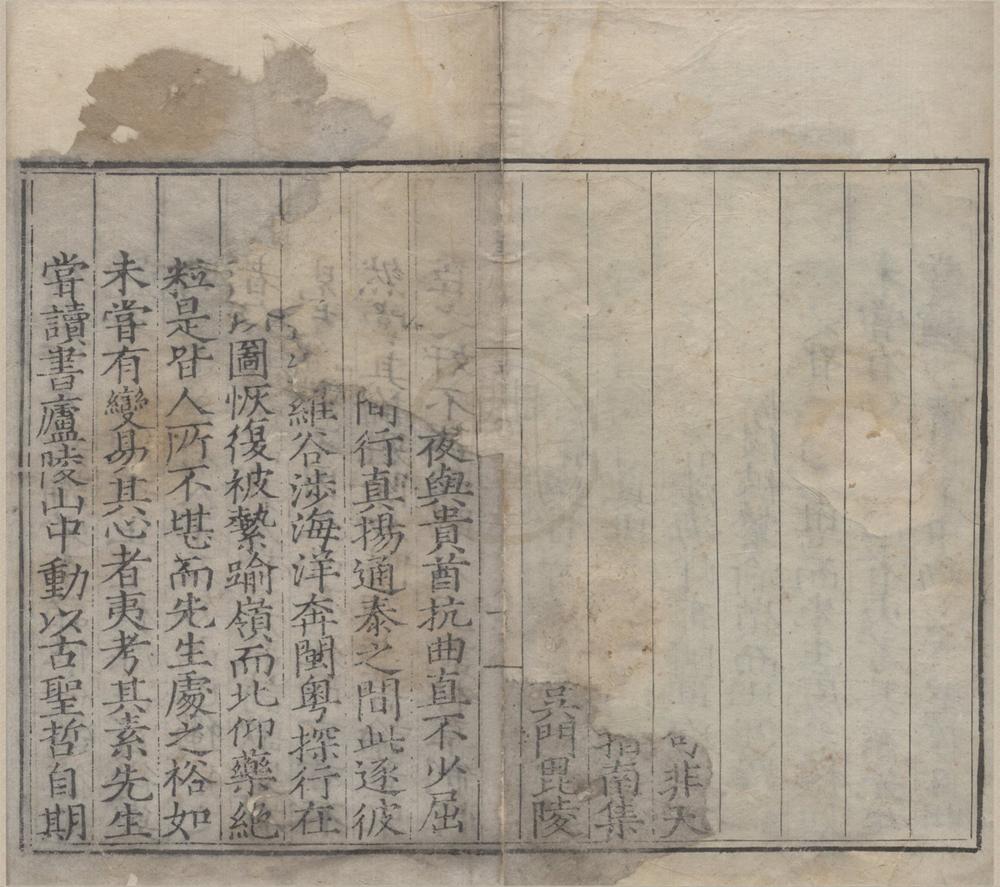 句非天
指南集
吳門毘陵
夜與貴酋抗曲直不少屈
間行真揚通泰之間此逐彼
維谷涉海洋奔閩粤探行在
圖恢復被縶踰嶺而北仰藥絕
粒是皆人所不堪而先生處之裕如
未嘗有變易其心者夷考其素先生
嘗讀書廬陵山中動以古聖哲自期